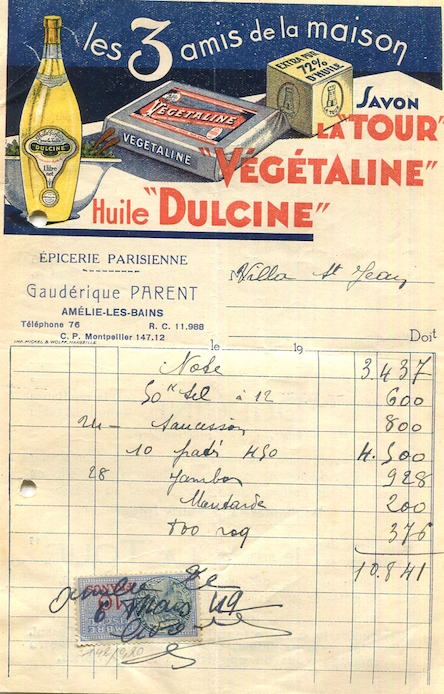 les 3 amis de la maison
EXTRA PUR
72%
D'HUILE
SAVON
LA "TOUR"
VÉGÉTALINE
VÉGÉTALINE
"VÉGÉTALINE"
DULCINE
1 litre
Huile "DULCINE"
ÉPICERIE PARISIENNE
Gaudérique PARENT
AMÉLIE-LES-BAINS
Téléphone 76 R. C. 11.988
C. P. Montpellier 147.12
Villa St Jean
Doit
IMP. MICKEL & WOLFF, MARSEILLE
le 19
Note 3.437
50 K sel à 12 600
24 — saucisson 800
10 paté 450 4.500
28 Jambon 928
Moutarde 200
800 roq 376
10.841
mars 49